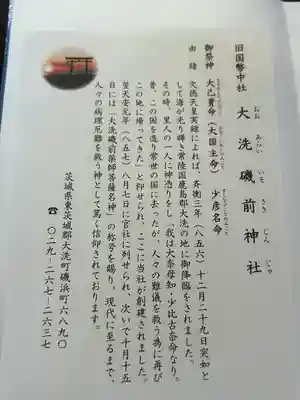 旧国幣中社
大洗磯前神社
おお あらい いそ さき じん じゃ
御祭神 大己貴命(大国主命) 少彦名命
由緒 文徳天皇実録によれば、斉衡三年(八五六)十二月二十九日突如と
して海が光り輝き常陸国鹿島郡大洗の地に御降臨をされました。
その時、里人の一人に神憑りをし「我は大奈母知 少比古奈命なり。
昔、この国を造り常世の国に去ったが、人々の難儀を救う為に再び
この地に帰ってきた」と仰せられ、ここに当社が創建されました。
翌天安元年(八五七)八月七日に官社に列せられ、次いで十月十五
日には「大洗磯前薬師菩薩名神」の称号を賜り、現代に至るまで、
人々の病理厄難を救う神として篤く信仰されております。
茨城県東茨城郡大洗町磯浜町六八九〇
☎ 〇二九-二六七-二六三七